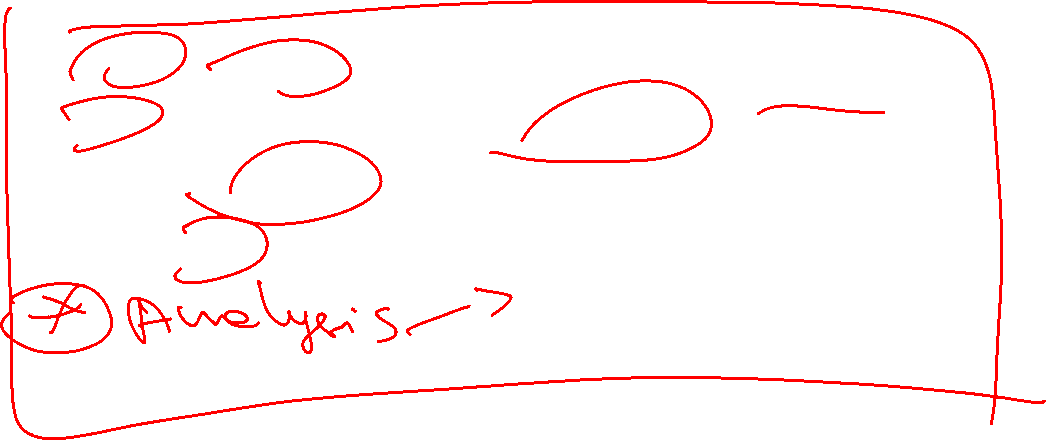 * Analysis →